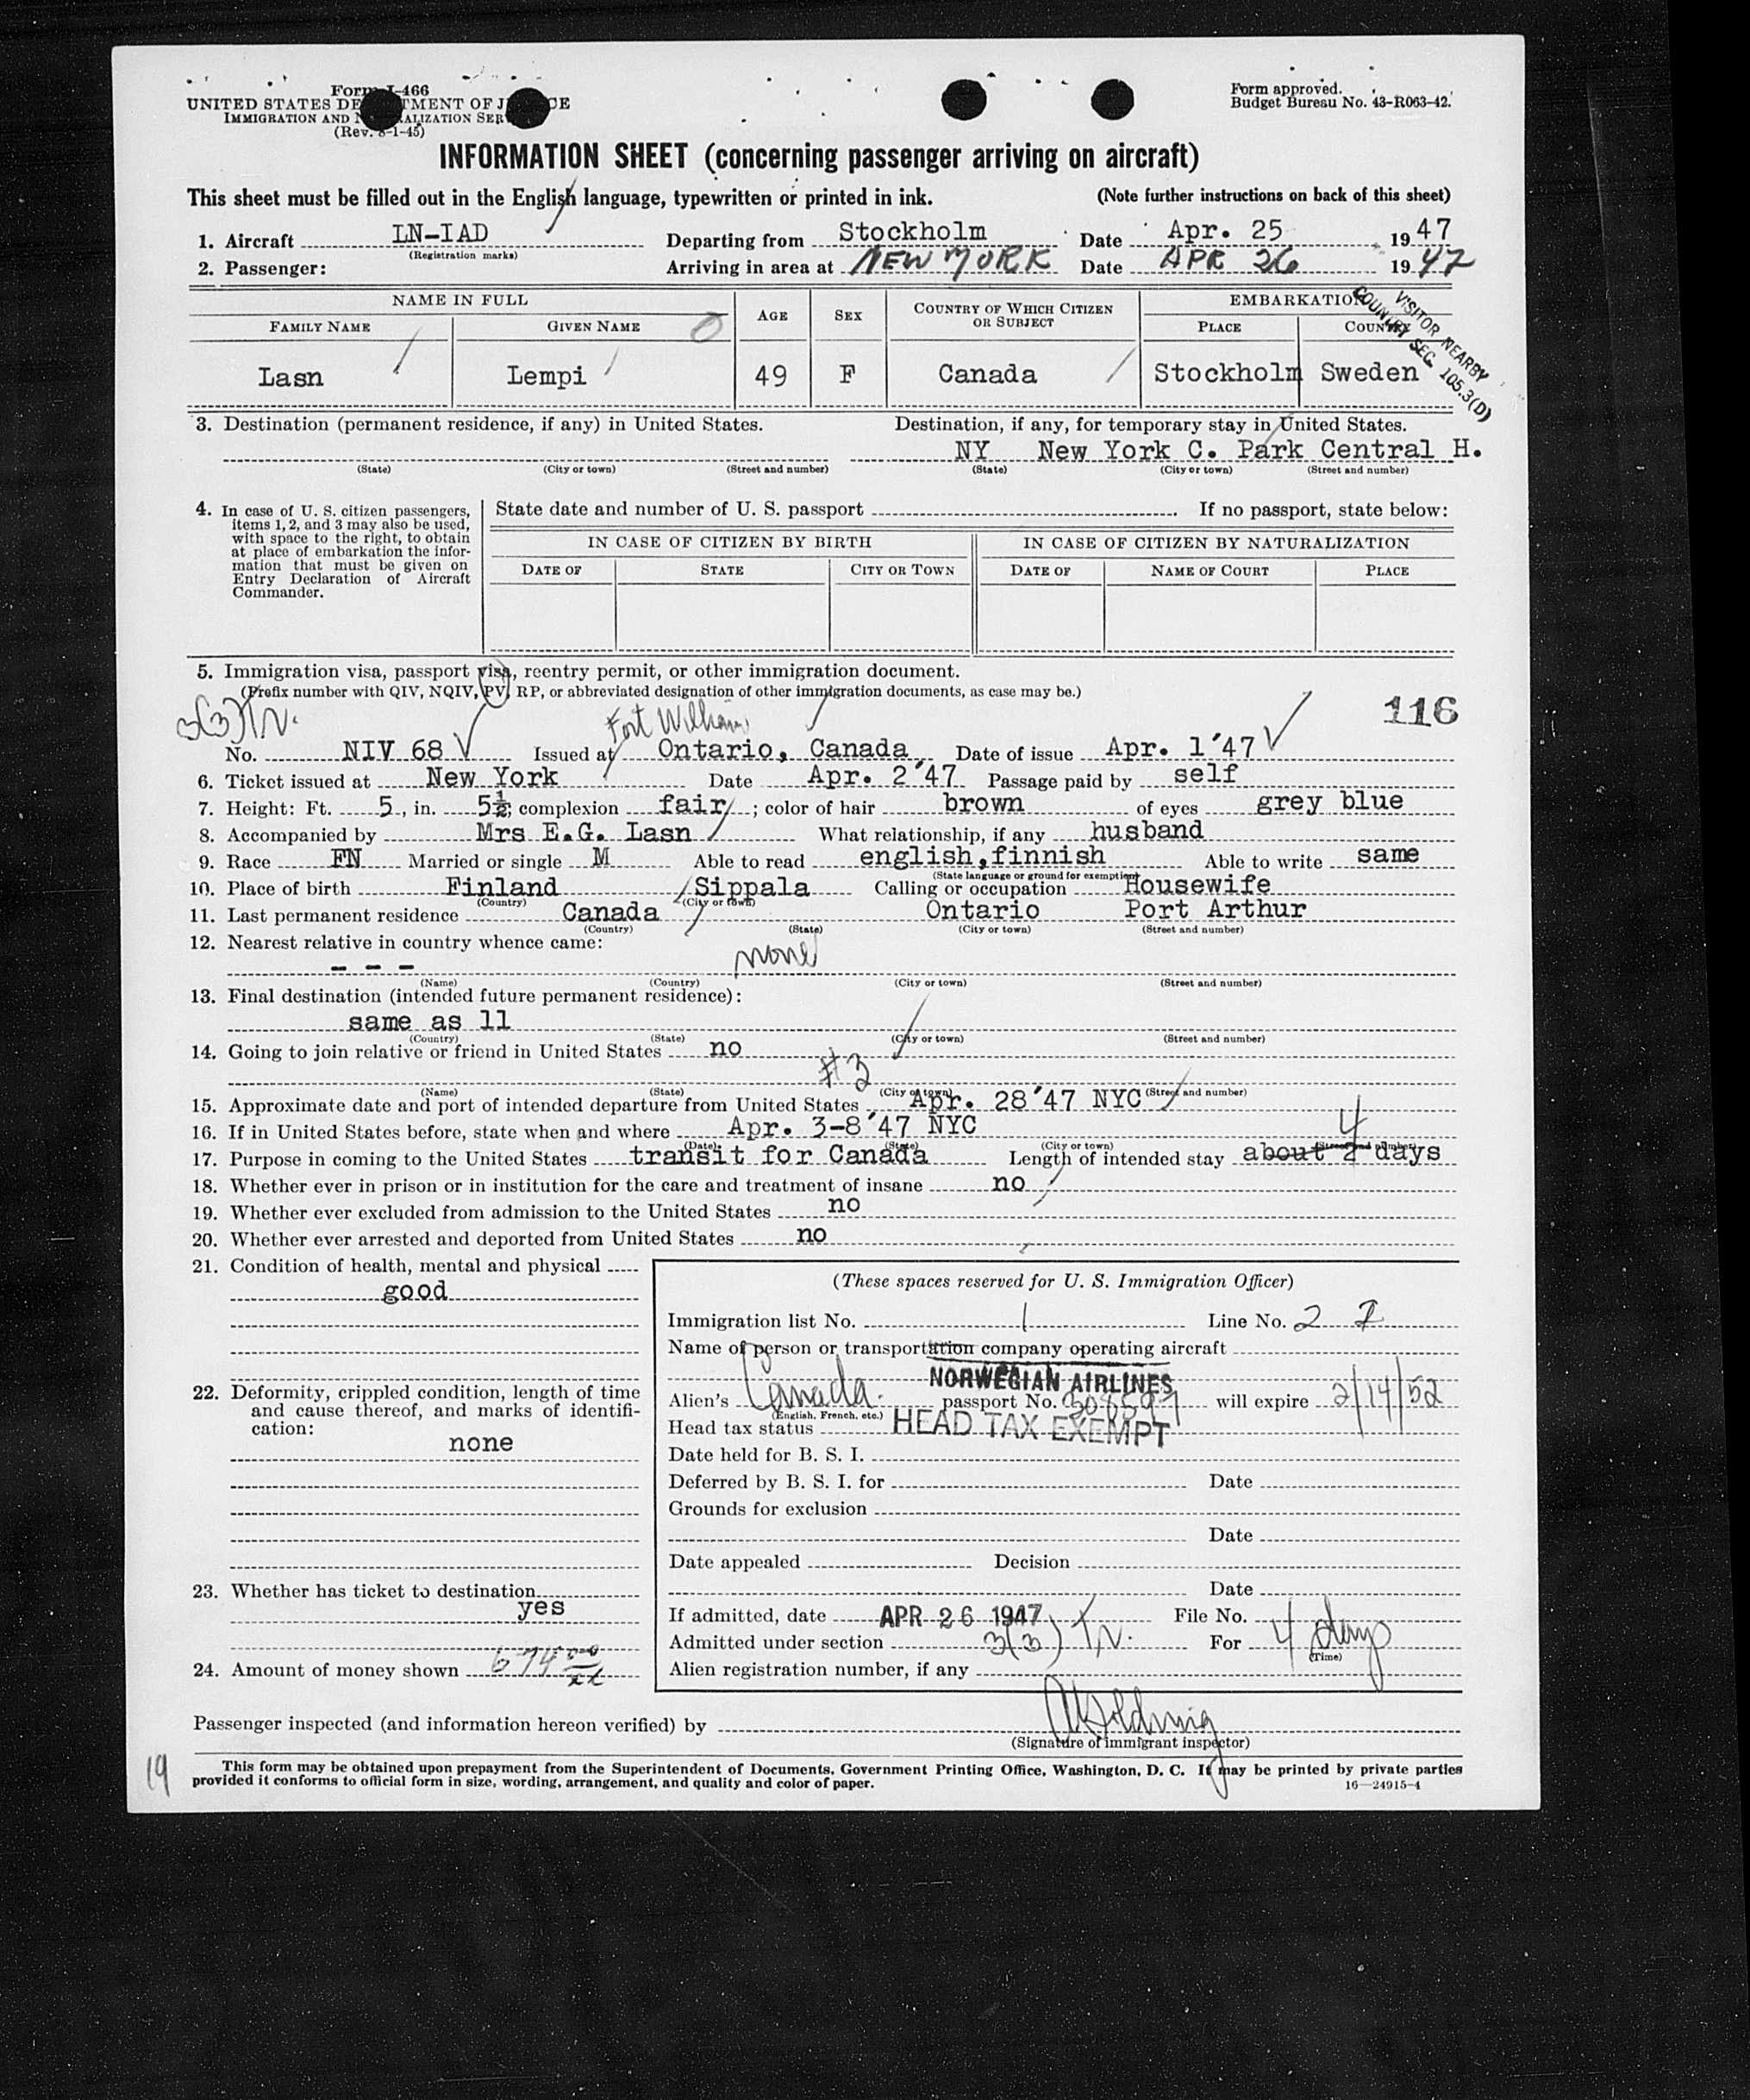 Form I-466
UNITED STATES DEPARTMENT OF JUSTICE
IMMIGRATION AND NATURALIZATION SERVICE
(Rev. 8-1-45)
Form approved.
Budget Bureau No. 43-R063-42.
INFORMATION SHEET (concerning passenger arriving on aircraft)
This sheet must be filled out in the English language, typewritten or printed in ink. (Note further instructions on back of this sheet)
1. Aircraft LN-IAD Departing from Stockholm Date Apr. 25 1947
(Registration marks)
2. Passenger: Arriving in area at NEW YORK Date APR 26 1947
NAME IN FULL AGE SEX COUNTRY OF WHICH CITIZEN OR SUBJECT EMBARKATION
FAMILY NAME GIVEN NAME PLACE COUNTRY
VISITOR NEARBY
COUNTRY SEC. 105.3(D)
Lasn Lempi 49 F Canada Stockholm Sweden
3. Destination (permanent residence, if any) in United States. Destination, if any, for temporary stay in United States.
NY New York C. Park Central H.
(State) (City or town) (Street and number) (State) (City or town) (Street and number)
4. In case of U. S. citizen passengers, items 1, 2, and 3 may also be used, with space to the right, to obtain at place of embarkation the information that must be given on Entry Declaration of Aircraft Commander.
State date and number of U. S. passport If no passport, state below:
IN CASE OF CITIZEN BY BIRTH IN CASE OF CITIZEN BY NATURALIZATION
DATE OF STATE CITY OR TOWN DATE OF NAME OF COURT PLACE
5. Immigration visa, passport visa, reentry permit, or other immigration document.
(Prefix number with QIV, NQIV, PV, RP, or abbreviated designation of other immigration documents, as case may be.)
116
3(3)Tr.
Fort William
No. NIV 68 Issued at Ontario, Canada Date of issue Apr. 1'47
6. Ticket issued at New York Date Apr. 2'47 Passage paid by self
7. Height: Ft. 5, in. 5½; complexion fair; color of hair brown of eyes grey blue
8. Accompanied by Mrs E.G. Lasn What relationship, if any husband
9. Race FN Married or single M Able to read english,finnish Able to write same
(State language or ground for exemption)
10. Place of birth Finland Sippala Calling or occupation Housewife
(Country) (City or town)
11. Last permanent residence Canada Ontario Port Arthur
(Country) (State) (City or town) (Street and number)
12. Nearest relative in country whence came:
- - - none
(Name) (Country) (City or town) (Street and number)
13. Final destination (intended future permanent residence):
same as 11
(Country) (State) (City or town) (Street and number)
14. Going to join relative or friend in United States no
#3
(Name) (State) (City or town) (Street and number)
15. Approximate date and port of intended departure from United States Apr. 28'47 NYC
16. If in United States before, state when and where Apr. 3-8'47 NYC
4
(Date) (State) (City or town) (Street and number)
17. Purpose in coming to the United States transit for Canada Length of intended stay about 2 days
18. Whether ever in prison or in institution for the care and treatment of insane no
19. Whether ever excluded from admission to the United States no
20. Whether ever arrested and deported from United States no
21. Condition of health, mental and physical
good
22. Deformity, crippled condition, length of time and cause thereof, and marks of identification:
none
23. Whether has ticket to destination
yes
24. Amount of money shown
(These spaces reserved for U. S. Immigration Officer)
Immigration list No. 1 Line No. 2
Name of person or transportation company operating aircraft
NORWEGIAN AIRLINES
Alien's Canada. passport No. will expire 2/14/52
(English, French, etc.)
Head tax status HEAD TAX EXEMPT
Date held for B. S. I.
Deferred by B. S. I. for Date
Grounds for exclusion
Date
Date appealed Decision
Date
If admitted, date APR 26 1947 File No.
Admitted under section 3(3) Tr. For 4 days
(Time)
Alien registration number, if any
Passenger inspected (and information hereon verified) by
(Signature of immigrant inspector)
19
This form may be obtained upon prepayment from the Superintendent of Documents, Government Printing Office, Washington, D. C. It may be printed by private parties
provided it conforms to official form in size, wording, arrangement, and quality and color of paper. 16—24915-4